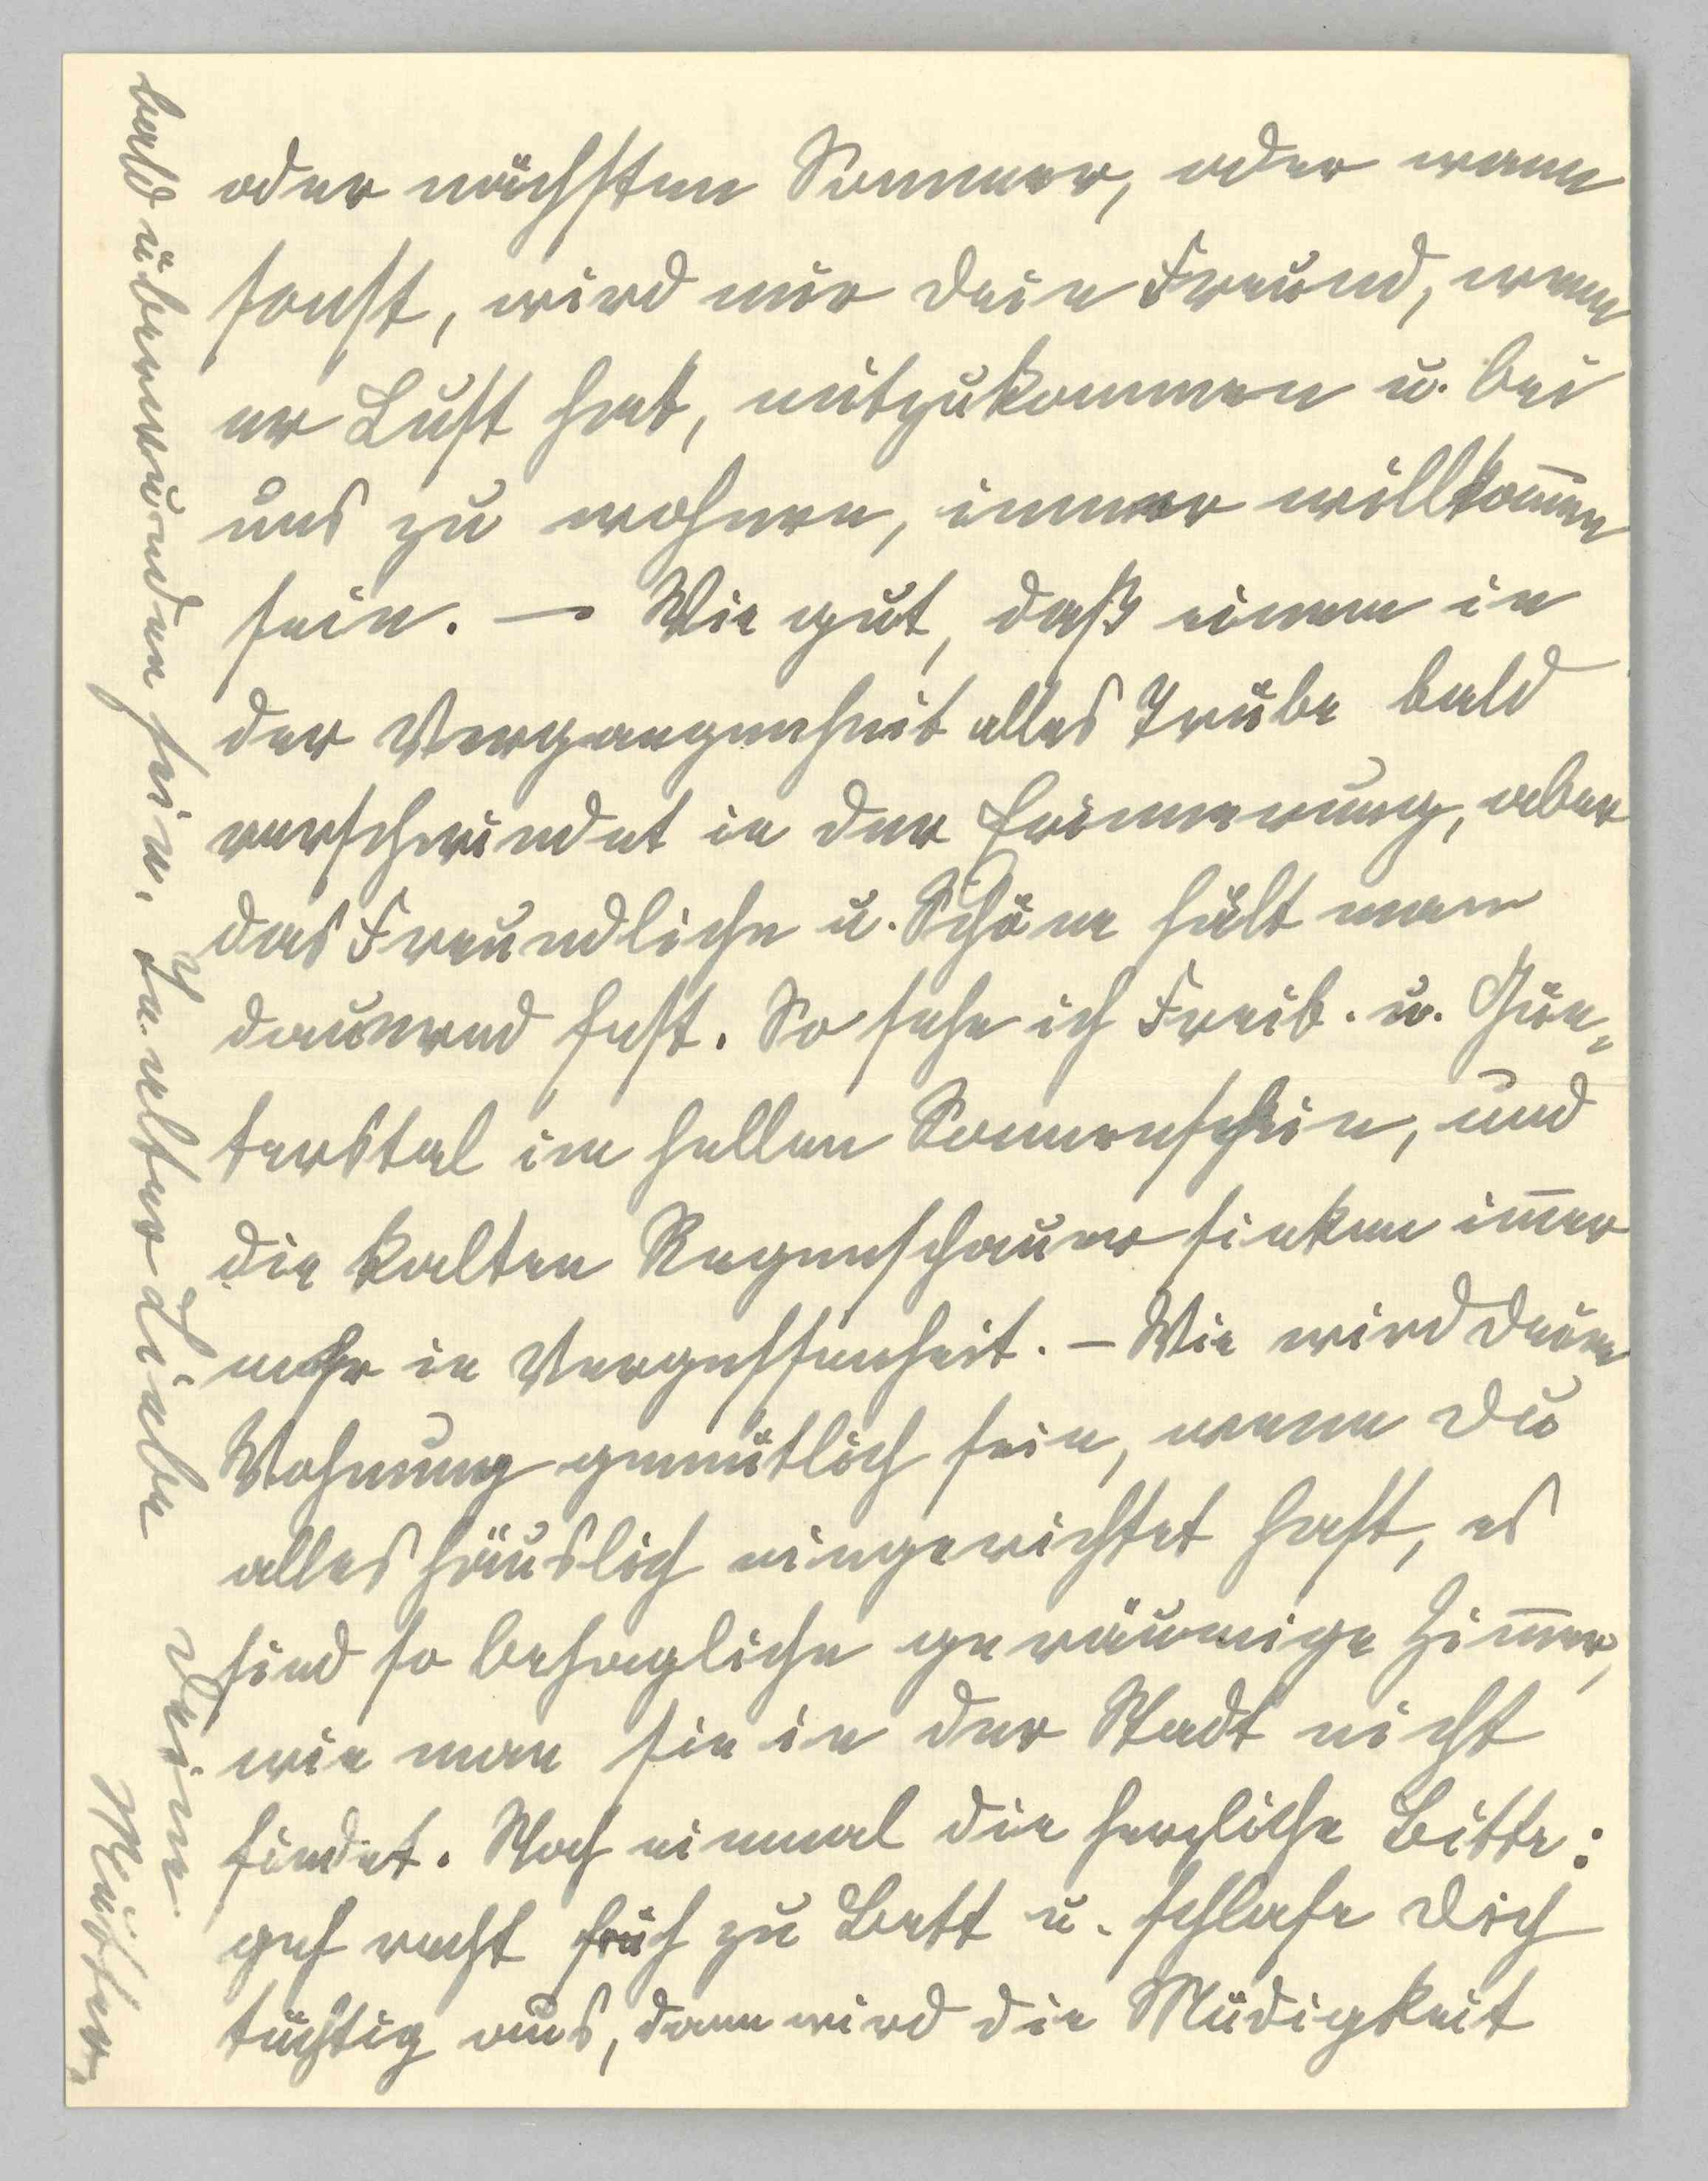 oder nächsten Sommer, oder wann
sonst, wird mir Dein Freund, wenn
er Lust hat, mitzukommen u. bei
uns zu wohnen, immer willkom̄en
sein. — Wie gut, daß einem in
der Vergangenheit alles Trübe bald
verschwindet in der Erinnerung, aber
das Freundliche u. Schöne hält man
dauernd fest. So sehe ich Freib. u. Gün-
terstal im hellen Sonnenschein, und
die kalten Regenschauer sinken im̄er
mehr in Vergessenheit. – Wie wird Deine
Wohnung gemütlich sein, wenn Du
alles häuslich eingerichtet hast, es
sind so behagliche geräumige Zim̄er,
wie man sie in der Stadt nicht
findet. Noch einmal die herzliche Bitte:
geh recht früh zu Bett u. schlafe Dich
tüchtig aus, dann wird die Müdigkeit
bald überwunden sein. In alter Liebe
Deine
Mutter.